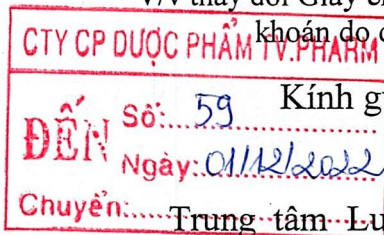 V/v thay đổi Giấy ch
khoán do
CTY CP DƯỢC PHẨM TV.PHARM
Kính g
ĐẾN
Số: 59
Ngày: 01/12/2022
Chuyển:
Trung tâm Lư